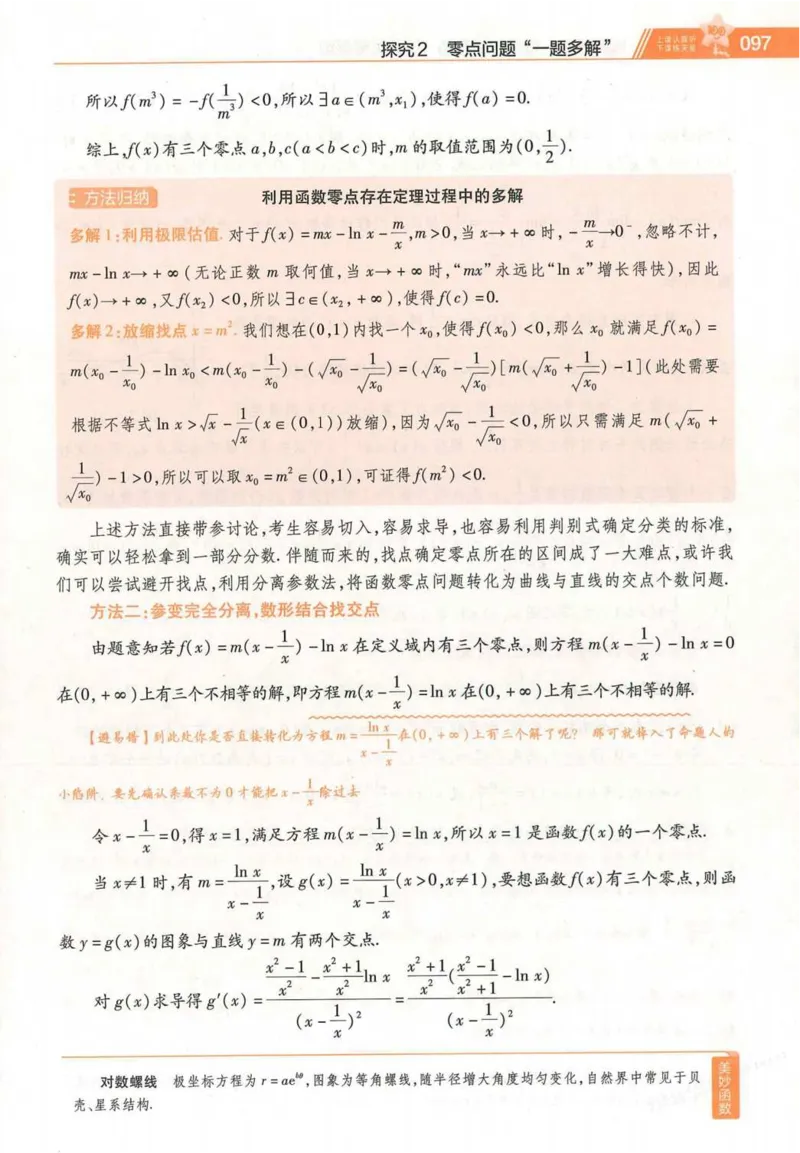 探究2 零点问题“一题多解”
097
所以f(m³) = -f(1/m³) <0,所以∃a∈(m³,x₁),使得f(a) =0.
综上,f(x)有三个零点a,b,c(a<b<c)时,m的取值范围为(0,1/2).
方法归纳 利用函数零点存在定理过程中的多解
多解1:利用极限估值. 对于f(x) =mx-ln x-m/x,m>0,当x→+∞时,-m/x→0⁻,忽略不计,
mx-ln x→+∞(无论正数m取何值,当x→+∞时,“mx”永远比“ln x”增长得快),因此
f(x)→+∞,又f(x₂) <0,所以∃c∈(x₂,+∞),使得f(c) =0.
多解2:放缩找点x=m². 我们想在(0,1)内找一个x₀,使得f(x₀) <0,那么x₀就满足f(x₀) =
m(x₀-1/x₀)-ln x₀<m(x₀-1/x₀)-(√x₀-1/√x₀)=(√x₀-1/√x₀)[m(√x₀+1/√x₀)-1](此处需要
根据不等式ln x>√x-1/√x(x∈(0,1))放缩),因为√x₀-1/√x₀<0,所以只需满足m(√x₀+
1/√x₀)-1>0,所以可以取x₀=m²∈(0,1),可证得f(m²) <0.
上述方法直接带参讨论,考生容易切入,容易求导,也容易利用判别式确定分类的标准,
确实可以轻松拿到一部分分数.伴随而来的,找点确定零点所在的区间成了一大难点,或许我
们可以尝试避开找点,利用分离参数法,将函数零点问题转化为曲线与直线的交点个数问题.
方法二:参变完全分离,数形结合找交点
由题意知若f(x) =m(x-1/x)-ln x在定义域内有三个零点,则方程m(x-1/x)-ln x=0
在(0,+∞)上有三个不相等的解,即方程m(x-1/x)=ln x在(0,+∞)上有三个不相等的解.
【避易错】到此处你是否直接转化为方程m=ln x/(x-1/x)在(0,+∞)上有三个解了呢? 那可就掉入了命题人的
小陷阱.要先确认系数不为0才能把x-1/x除过去
令x-1/x=0,得x=1,满足方程m(x-1/x)=ln x,所以x=1是函数f(x)的一个零点.
当x≠1时,有m=ln x/(x-1/x),设g(x) =ln x/(x-1/x)(x>0,x≠1),要想函数f(x)有三个零点,则函
数y=g(x)的图象与直线y=m有两个交点.
对g(x)求导得g′(x) =((x²-1)/x²-(x²+1)/x² ln x)/(x-1/x)²=((x²+1)/x²((x²-1)/(x²+1)-ln x))/(x-1/x)².
对数螺线 极坐标方程为r=aeᵇᶿ,图象为等角螺线,随半径增大角度均匀变化,自然界中常见于贝
壳、星系结构.
美妙函数